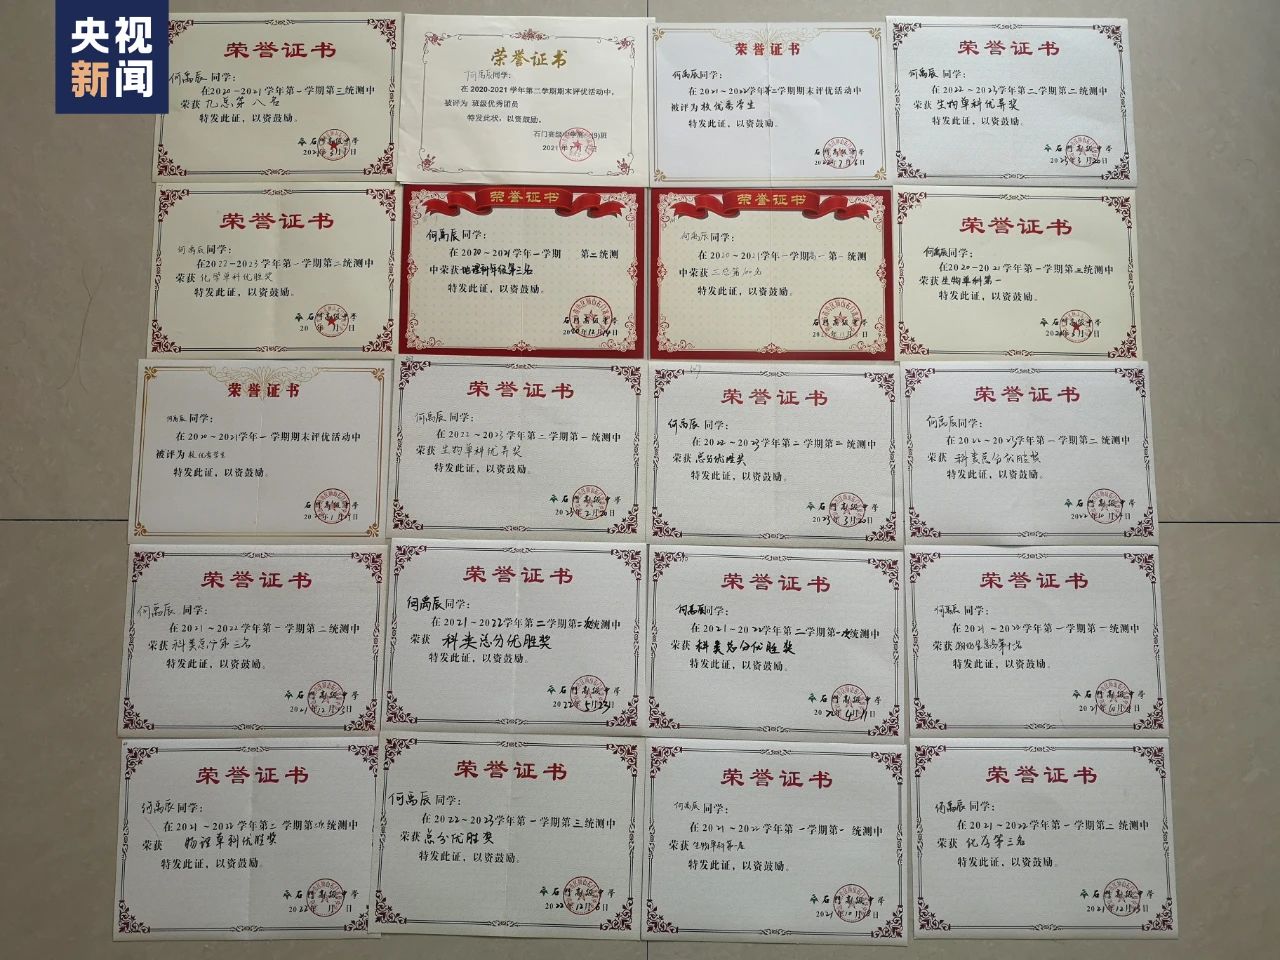 央视
新闻
荣誉证书
何禹辰同学：
在2020-2021学年第一学期第三统测中
荣获 九总第八名
特发此证，以资鼓励。
石门高级中学
荣誉证书
何禹辰同学：
在 2020-2021学年第二学期期末评优活动中，
被评为 班级优秀团员
特发此状，以资鼓励。
2021年7月
荣誉证书
何禹辰同学：
在2021~2022学年第二学期期末评优活动中
被评为 校优秀学生
特发此证，以资鼓励。
石门高级中学
荣誉证书
何禹辰同学：
在2022~2023学年第二学期第二统测中
荣获 生物单科优异奖
特发此证，以资鼓励。
石门高级中学
2023年3月20日
荣誉证书
何禹辰同学：
在2022-2023学年第一学期第二统测中
荣获 化学单科优胜奖
特发此证，以资鼓励。
石门高级中学
荣誉证书
何禹辰同学：
在2020~2021学年一学期 第二统测
中荣获 地理科年级第三名
特发此证，以资鼓励。
石门高级中学
2020年12月14日
荣誉证书
何禹辰同学：
在2020~2021学年一学期 第一统测
中荣获
特发此证，以资鼓励。
石门高级中学
荣誉证书
何禹辰同学：
在2020-2021学年第一学期第三统测中
荣获 生物单科第一
特发此证，以资鼓励。
石门高级中学
荣誉证书
何禹辰同学：
在2020~2021学年一学期期末评优活动中
被评为 校优秀学生
特发此证，以资鼓励。
石门高级中学
荣誉证书
何禹辰同学：
在2022~2023学年第二学期第一统测中
荣获 生物单科优异奖
特发此证，以资鼓励。
石门高级中学
2023年2月20日
荣誉证书
何禹辰同学：
在2022~2023学年第二学期第二统测中
荣获 总分优胜奖
特发此证，以资鼓励。
石门高级中学
2023年3月20日
荣誉证书
何禹辰同学：
在2022~2023学年第一学期第二统测中
荣获 科类总分优胜奖
特发此证，以资鼓励。
石门高级中学
荣誉证书
何禹辰同学：
在2021~2022学年第一学期第二统测中
荣获 科类总分第三名
特发此证，以资鼓励。
石门高级中学
2021年12月13日
荣誉证书
何禹辰同学：
在2021~2022学年第二学期第二次统测中
荣获 科类总分优胜奖
特发此证，以资鼓励。
石门高级中学
2022年5月23日
荣誉证书
何禹辰同学：
在2021~2022学年第二学期第一次统测中
荣获 科类总分优胜奖
特发此证，以资鼓励。
石门高级中学
荣誉证书
何禹辰同学：
在2021~2022学年第一学期第一统测中
荣获
特发此证，以资鼓励。
石门高级中学
荣誉证书
何禹辰同学：
在2021~2022学年第二学期 统测中
荣获 物理单科优胜奖
特发此证，以资鼓励。
石门高级中学
荣誉证书
何禹辰同学：
在2022~2023学年第一学期第三统测中
荣获 总分优胜奖
特发此证，以资鼓励。
石门高级中学
荣誉证书
何禹辰同学：
在2021~2022学年第一学期第一统测中
荣获 生物单科第一名
特发此证，以资鼓励。
石门高级中学
荣誉证书
何禹辰同学：
在2021~2022学年第一学期第二统测中
荣获 化学第三名
特发此证，以资鼓励。
石门高级中学
2021年12月13日